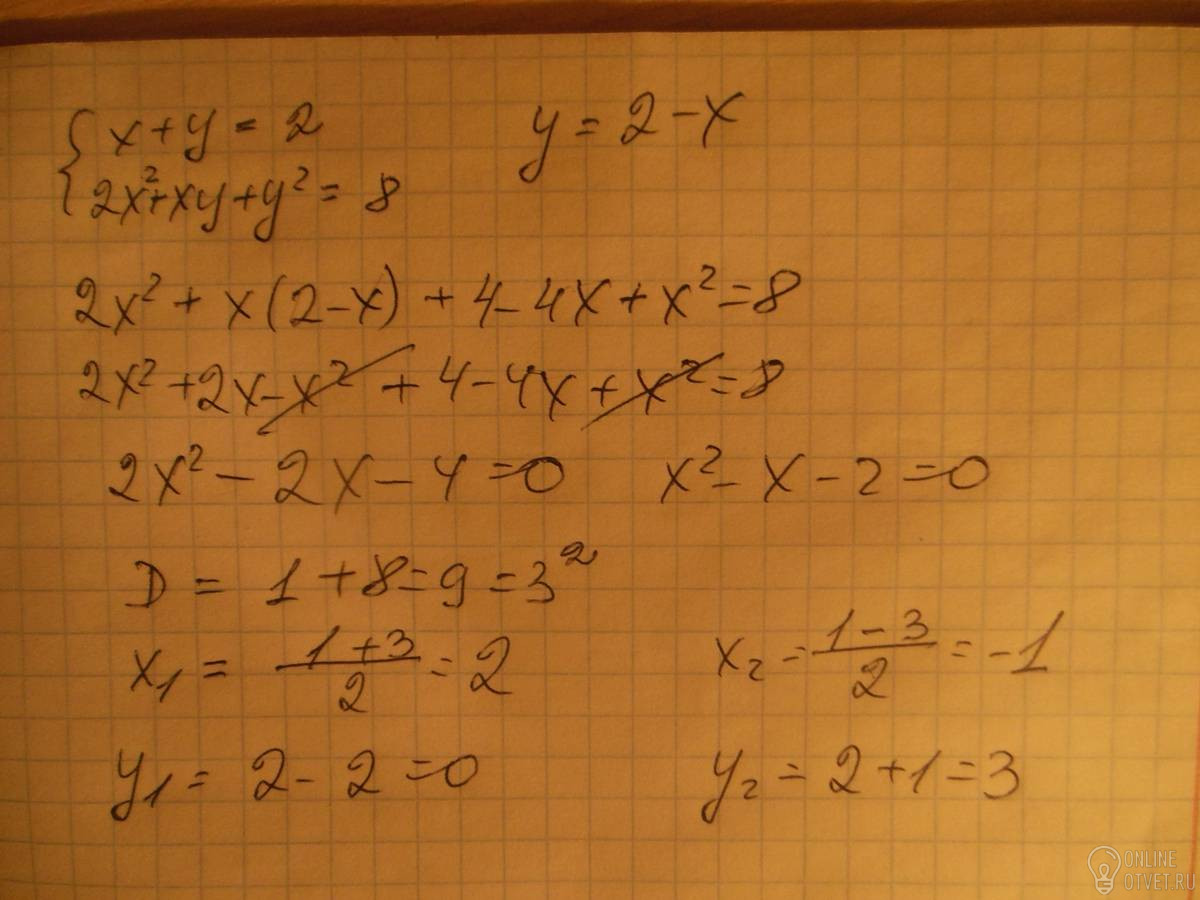 { x+y = 2
2x²+xy+y² = 8
y = 2-x
2x² + x(2-x) + 4-4x+x²=8
2x²+2x-x² + 4-4x+x²=8
2x²-2x-4=0
x²-x-2=0
D = 1+8=9=3²
x₁ = (1+3)/2 = 2
x₂ = (1-3)/2 = -1
y₁ = 2-2=0
y₂ = 2+1=3
ONLINE
OTVET.RU